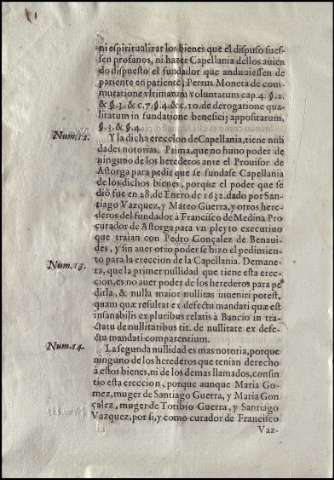 ni espiritualizar los bienes que el dispuso fues-
sen profanos, ni hazer Capellania de los auien
do dispuesto el fundador que anduuiessen de
pariente en pariente; Persus Moneta de com
mutatione vltimarum voluntatum cap. 4. §. 2.
& §. 3. & c. 7. §. 4. & c. 10. de derogatione qua
litatum in fundatione beneficij appositarum,
§. 3. & §. 4.
Num. 12.
Y la dicha ereccion de Capellania, tiene nuli
dades notorias. Prima, que no huuo poder de
ninguno de los herederos ante el Prouisor de
Astorga para pedir que se fundase Capellania
de los dichos bienes, porque el poder que se
dió fue en 28. de Enero de 1632. dado por San-
tiago Vazquez, y Mateo Guerra, y otros here-
deros del fundador à Francisco de Medina Pro
curador de Astorga para vn pleyto executiuo
que traian con Pedro Gonçalez de Benaui-
des, y sin auer otro poder se hizo el pedimien-
to para la ereccion de la Capellania. Demane-
Num. 13.
ra, que la primer nullidad que tiene esta erec-
cion, es no auer poder de los herederos para pe
dirla, & nulla maior nullitas inueniri potest,
quam quæ resultat ex defectu mandati quæ est
insanabilis ex pluribus relatis à Bancio in trac-
tatu de nullitatibus tit. de nullitate ex defe-
ctu mandati comparentium.
Num. 14.
La segunda nullidad es mas notoria, porque
ninguno de los herederos que tenian derecho
à estos bienes, ni de los demas llamados, consin
tio esta ereccion, porque aunque Maria Go-
mez, muger de Santiago Guerra, y Maria Gon
çalez, muger de Toribio Guerra, y Santiago
Vazquez, por si, y como curador de Francisco
Vaz-